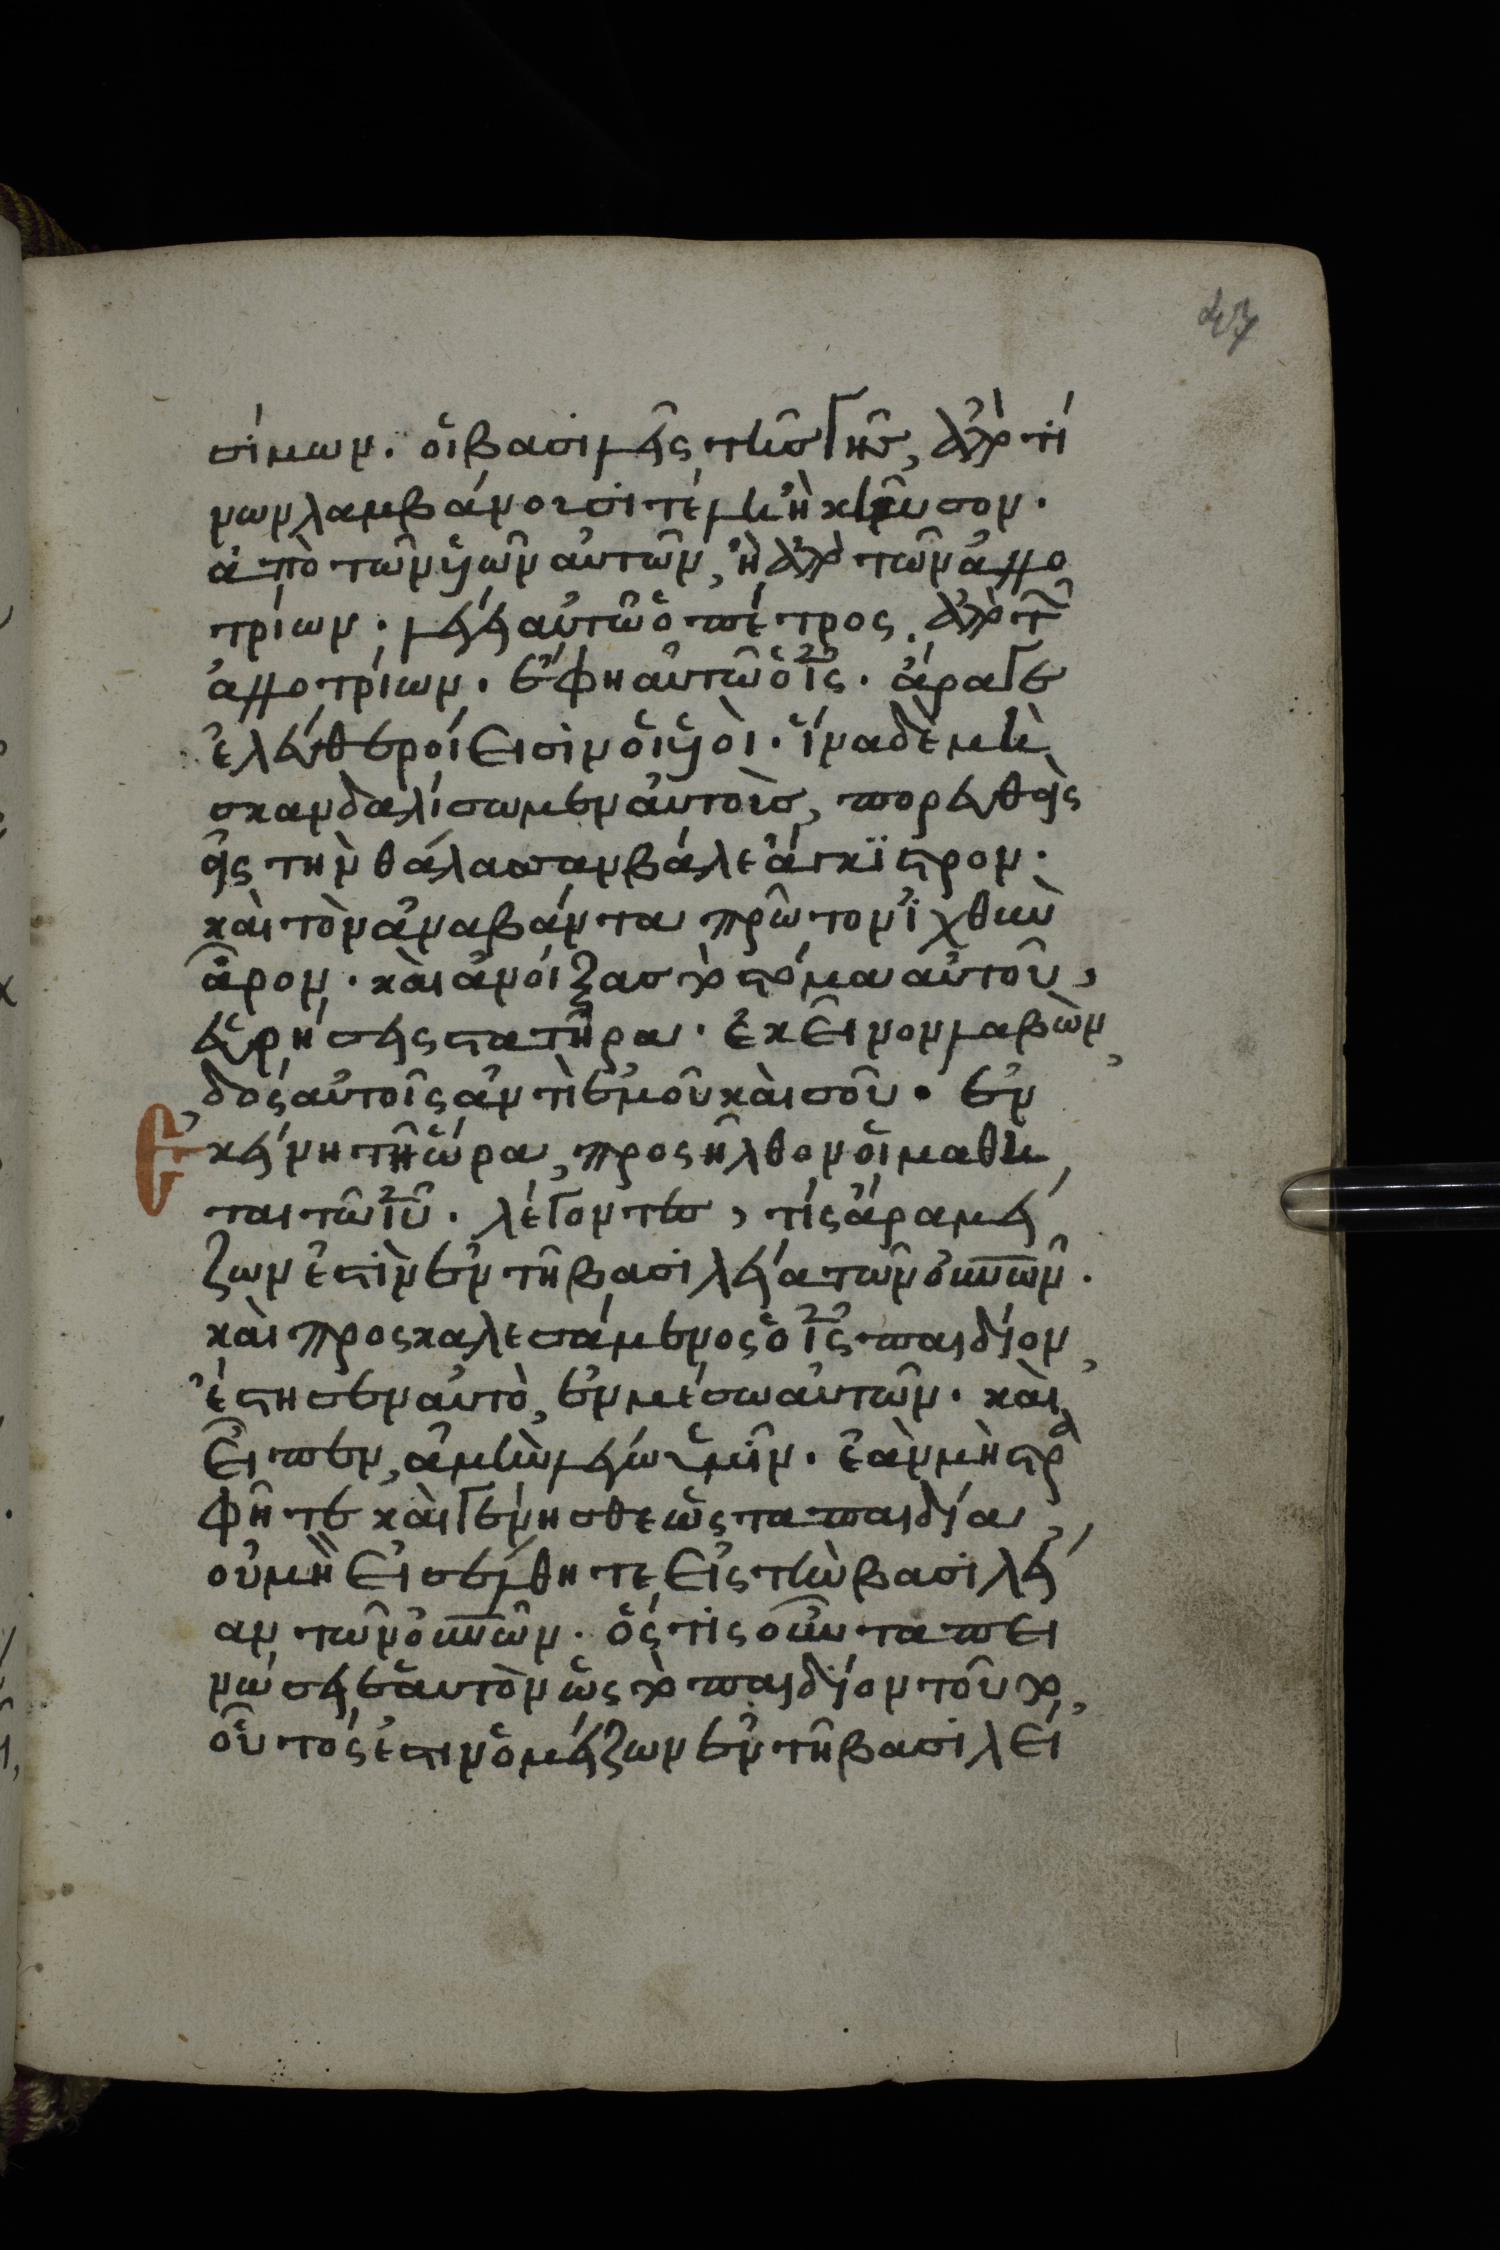 47
σίμων. ὁι βασιλεῖς τῆς γῆς, ἀπὸ τί
νων λαμβάνουσι τέλη ἢ κῆνσον.
ἀπὸ τῶν υἱῶν αὐτῶν, ἢ ἀπὸ τῶν ἀλλο
τρίων. λέγει αὐτῶ ὁ πέτρος, ἀπὸ τῶν
ἀλλοτρίων. ἔφη αὐτῶ ὁ ἰς. ἄραγε
ἐλεύθεροί εισὶν ὁι υἱοὶ. ἵνα δὲ μὴ
σκανδαλίσωμεν αὐτοὺς, πορευθεὶς
εἰς τὴν θάλασσαν βάλε ἄγκϊστρον.
καὶ τὸν ἀναβάντα πρῶτον ἰχθὺν
ἆρον. καὶ ἀνοίξας τὸ στόμα αὐτοῦ,
εὑρήσεις στατῆρα. ἐκεῖνον λαβὼν,
δὸς αὐτοῖς ἀντὶ ἐμοῦ καὶ σοῦ. ἐν
Ἐκείνη τῆ ὥρα, προςῆλθον ὁι μαθη
ται τῶ ἰῦ. λέγοντες, τίς ἄρα μεί
ζων ἐστὶν ἐν τῆ βασιλεία τῶν οὐνῶν.
καὶ προςκαλεσάμενος ὁ ἰς παιδίον,
ἔστησεν αὐτὸ, ἐν μέσω αὐτῶν. καὶ
εἶπεν, ἀμὴν λέγω ὑμῖν. ἐὰν μὴ στρα
φῆτε καὶ γένησθε ὡς τα παιδία,
οὐ μὴ εἰσέλθητε εἰς τὴν βασιλεί
αν τῶν οὐνῶν. ὅςτις οὖν ταπει
νώσει ἑαυτὸν ὡς τὸ παιδίον τοῦτο,
οὗτός ἐστιν ὁ μείζων ἐν τῆ βασιλεί